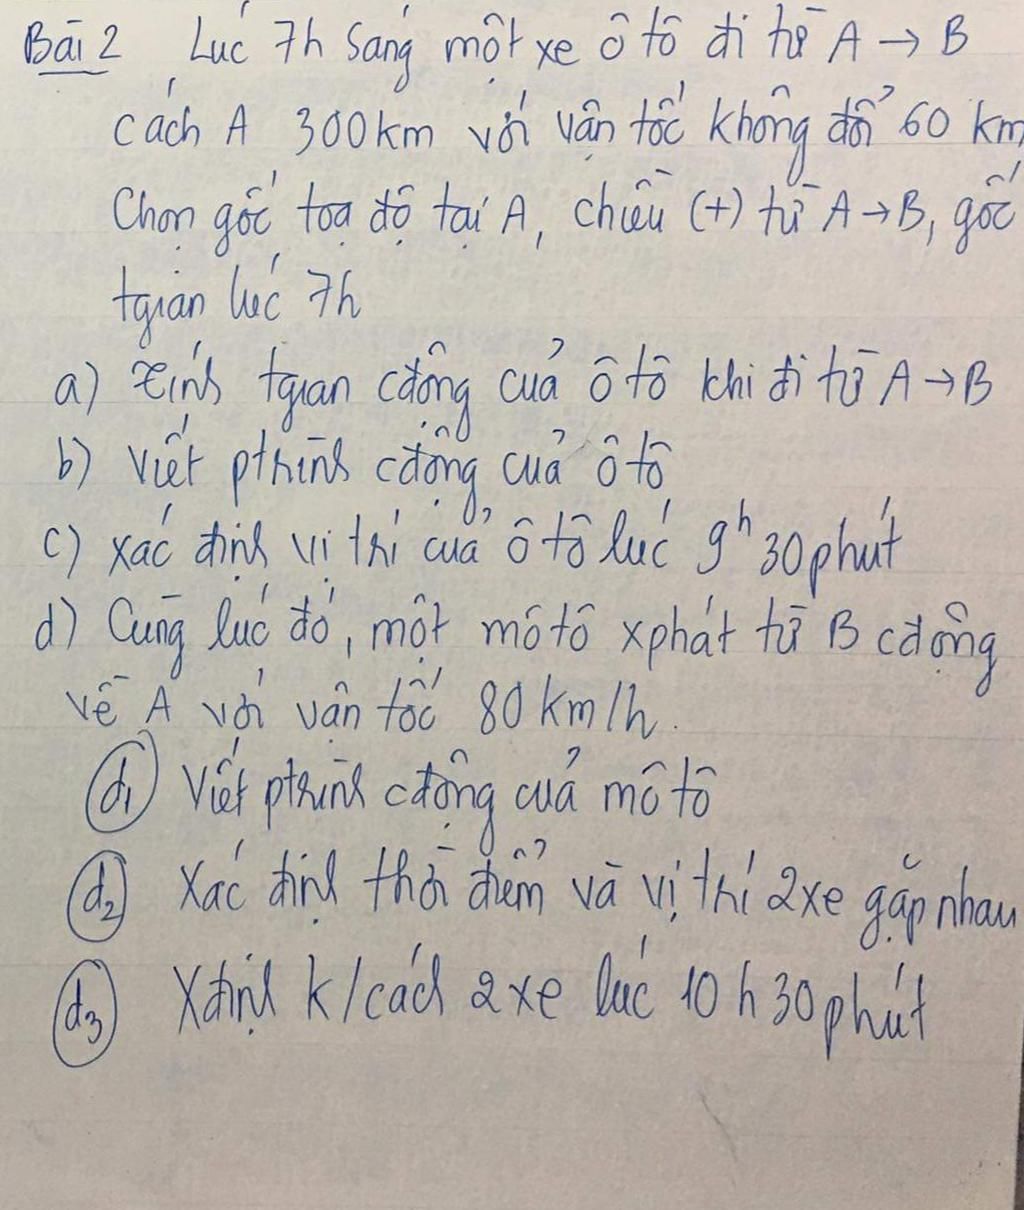 Bài 2 Lúc 7h sáng một xe ô tô đi từ A → B
cách A 300km với vận tốc không đổi 60 km
Chọn gốc toạ độ tại A, chiều (+) từ A → B, gốc
tgian lúc 7h
a) Tính tgian cđộng của ô tô khi đi từ A → B
b) Viết ptrình cđộng của ô tô
c) Xác định vị trí của ô tô lúc 9h 30 phút
d) Cùng lúc đó, một mô tô xphát từ B cđộng
về A với vận tốc 80 km/h.
d1 Viết ptrình cđộng của mô tô
d2 Xác định thời điểm và vị trí 2 xe gặp nhau
d3 Xđịnh k/cách 2 xe lúc 10 h 30 phút